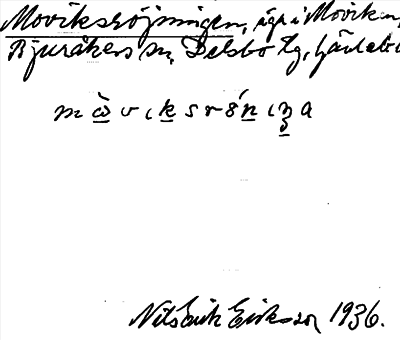 Moviksröjningen, ägr i Moviken,
Bjuråkers sn, Delsbo tg,
m ὼ v ı k s r ó n ı ŋ a
Nils Erik Eriksson 1936.